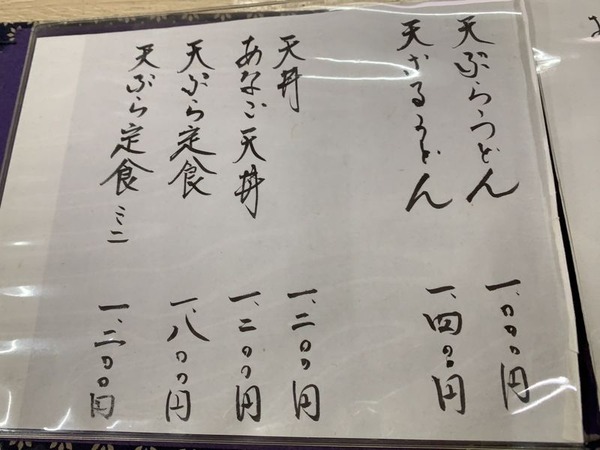 天ぷらうどん 一、〇〇〇円
天ざるうどん 一、四〇〇円
天丼 一、二〇〇円
あなご天丼 一、二〇〇円
天ぷら定食 一、八〇〇円
天ぷら定食ミニ 一、二〇〇円